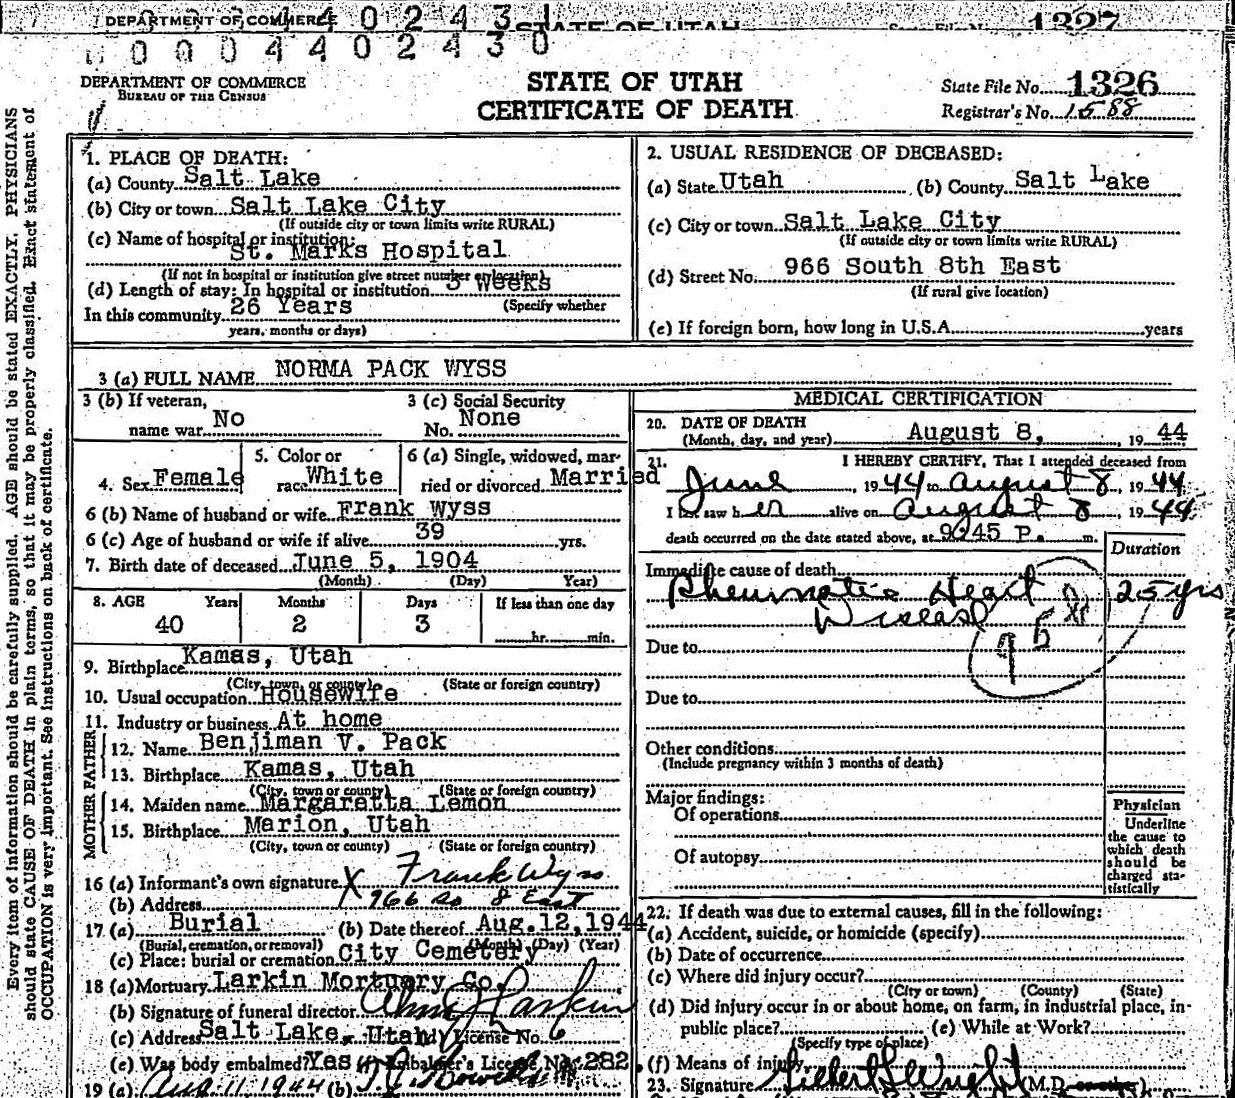 DEPARTMENT OF COMMERCE STATE OF UTAH 1327
0 0 0 4 4 0 2 4 3 0
DEPARTMENT OF COMMERCE
BUREAU OF THE CENSUS
STATE OF UTAH
CERTIFICATE OF DEATH
State File No. 1326
Registrar's No. 1588
Every item of information should be carefully supplied. AGE should be stated EXACTLY. PHYSICIANS
should state CAUSE OF DEATH in plain terms, so that it may be properly classified. Exact statement of
OCCUPATION is very important. See instructions on back of certificate.
1. PLACE OF DEATH:
(a) County Salt Lake
(b) City or town Salt Lake City
(If outside city or town limits write RURAL)
(c) Name of hospital or institution:
St. Marks Hospital
(If not in hospital or institution give street number or location)
(d) Length of stay: In hospital or institution 3 Weeks
(Specify whether
In this community 26 Years
years, months or days)
2. USUAL RESIDENCE OF DECEASED:
(a) State Utah (b) County Salt Lake
(c) City or town Salt Lake City
(If outside city or town limits write RURAL)
(d) Street No. 966 South 8th East
(If rural give location)
(e) If foreign born, how long in U.S.A. years
3 (a) FULL NAME NORMA PACK WYSS
3 (b) If veteran, name war No
3 (c) Social Security No. None
4. Sex Female
5. Color or race White
6 (a) Single, widowed, married or divorced Married
6 (b) Name of husband or wife Frank Wyss
6 (c) Age of husband or wife if alive 39 yrs.
7. Birth date of deceased June 5, 1904
(Month) (Day) Year)
8. AGE Years Months Days If less than one day
40 2 3 hr. min.
9. Birthplace Kamas, Utah
(City, town, or county) (State or foreign country)
10. Usual occupation Housewife
11. Industry or business At home
FATHER
12. Name Benjiman V. Pack
13. Birthplace Kamas, Utah
(City, town or county) (State or foreign country)
MOTHER
14. Maiden name Margaretta Lemon
15. Birthplace Marion, Utah
(City, town or county) (State or foreign country)
16 (a) Informant's own signature X Frank Wyss
(b) Address 966 So 8 East
17 (a) Burial (b) Date thereof Aug.12,1944
(Burial, cremation, or removal) (Month) (Day) (Year)
(c) Place: burial or cremation City Cemetery
18 (a) Mortuary Larkin Mortuary Co.
(b) Signature of funeral director Larkin
(c) Address Salt Lake, Utah (d) License No. 6
(e) Was body embalmed? Yes (f) Embalmer's License No. 282
19 (a) Aug 11, 1944 (b)
MEDICAL CERTIFICATION
20. DATE OF DEATH
(Month, day, and year) August 8, 19 44
21. I HEREBY CERTIFY, That I attended deceased from
June, 1944 to August 8, 1944
I last saw h er alive on August 8, 1944
death occurred on the date stated above, at 9:45 P. m.
Duration
Immediate cause of death
Rheumatic Heart 25 yrs
Disease
95
Due to
Due to
Other conditions
(Include pregnancy within 3 months of death)
Major findings:
Of operations
Of autopsy
Physician
Underline
the cause to
which death
should be
charged sta-
tistically
22. If death was due to external causes, fill in the following:
(a) Accident, suicide, or homicide (specify)
(b) Date of occurrence
(c) Where did injury occur?
(City or town) (County) (State)
(d) Did injury occur in or about home, on farm, in industrial place, in-
public place? (e) While at Work?
(Specify type of place)
(f) Means of injury
23. Signature Wright (M.D.